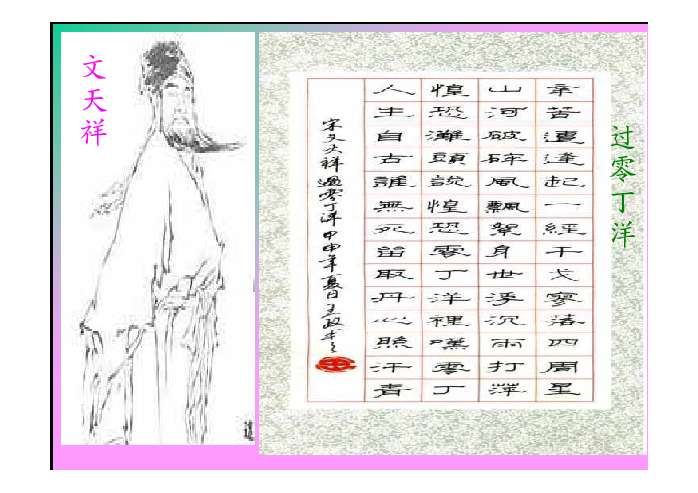 文天祥
过零丁洋
辛苦遭逢起一經干戈寥落四周星
山河破碎風飄絮身世浮沉雨打萍
惶恐灘頭說惶恐零丁洋裡嘆零丁
人生自古誰無死留取丹心照汗青
宋文天祥過零丁洋甲申年夏日王政